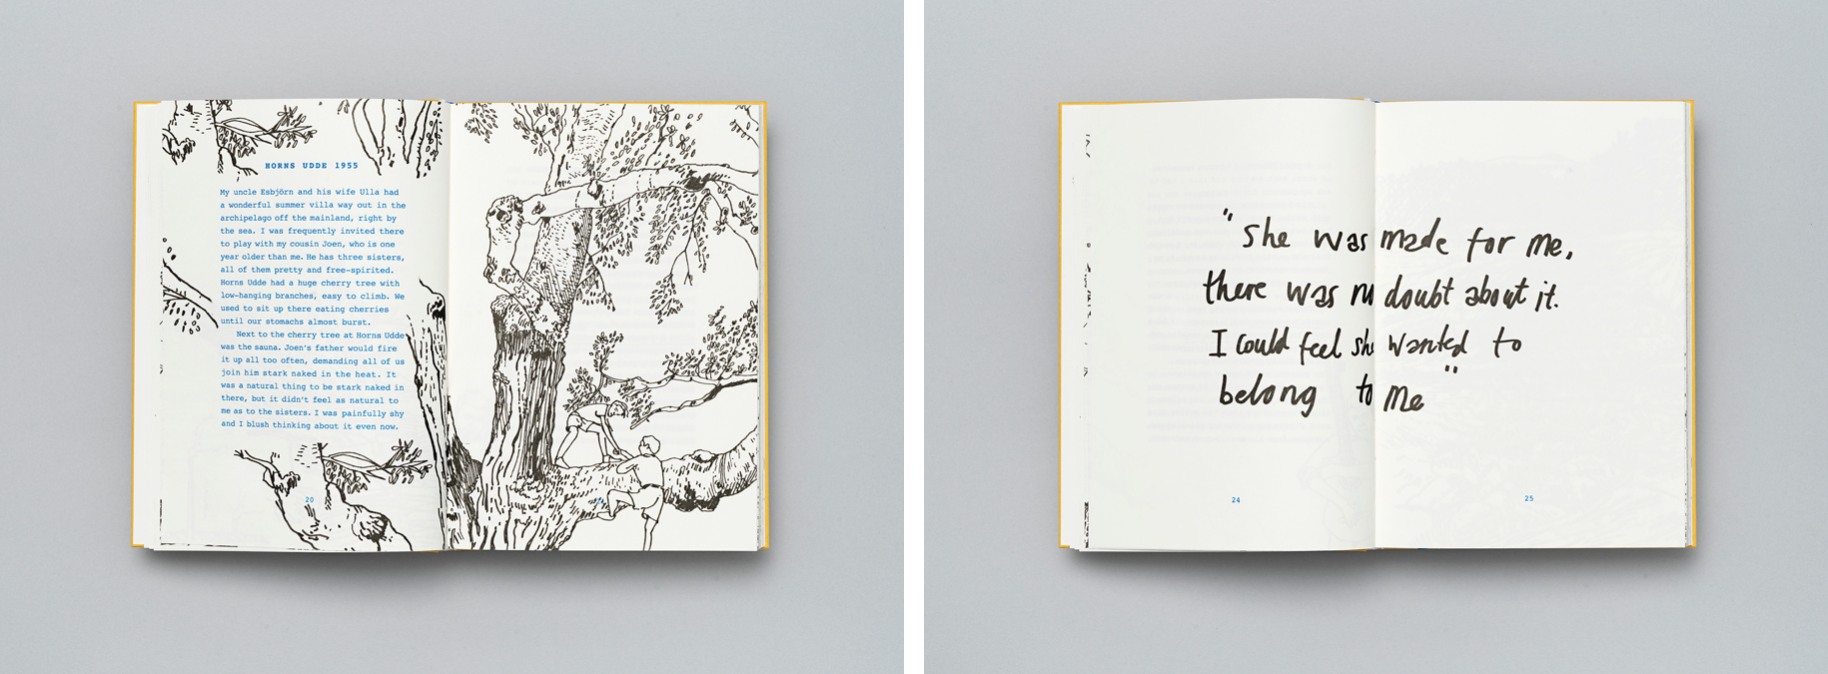 HORNS UDDE 1955
My uncle Esbjörn and his wife Ulla had
a wonderful summer villa way out in the
archipelago off the mainland, right by
the sea. I was frequently invited there
to play with my cousin Joen, who is one
year older than me. He has three sisters,
all of them pretty and free-spirited.
Horns Udde had a huge cherry tree with
low-hanging branches, easy to climb. We
used to sit up there eating cherries
until our stomachs almost burst.
Next to the cherry tree at Horns Udde
was the sauna. Joen's father would fire
it up all too often, demanding all of us
join him stark naked in the heat. It
was a natural thing to be stark naked in
there, but it didn't feel as natural to
me as to the sisters. I was painfully shy
and I blush thinking about it even now.
20
"She was made for me,
there was no doubt about it.
I could feel she wanted to
belong to me"
24
25